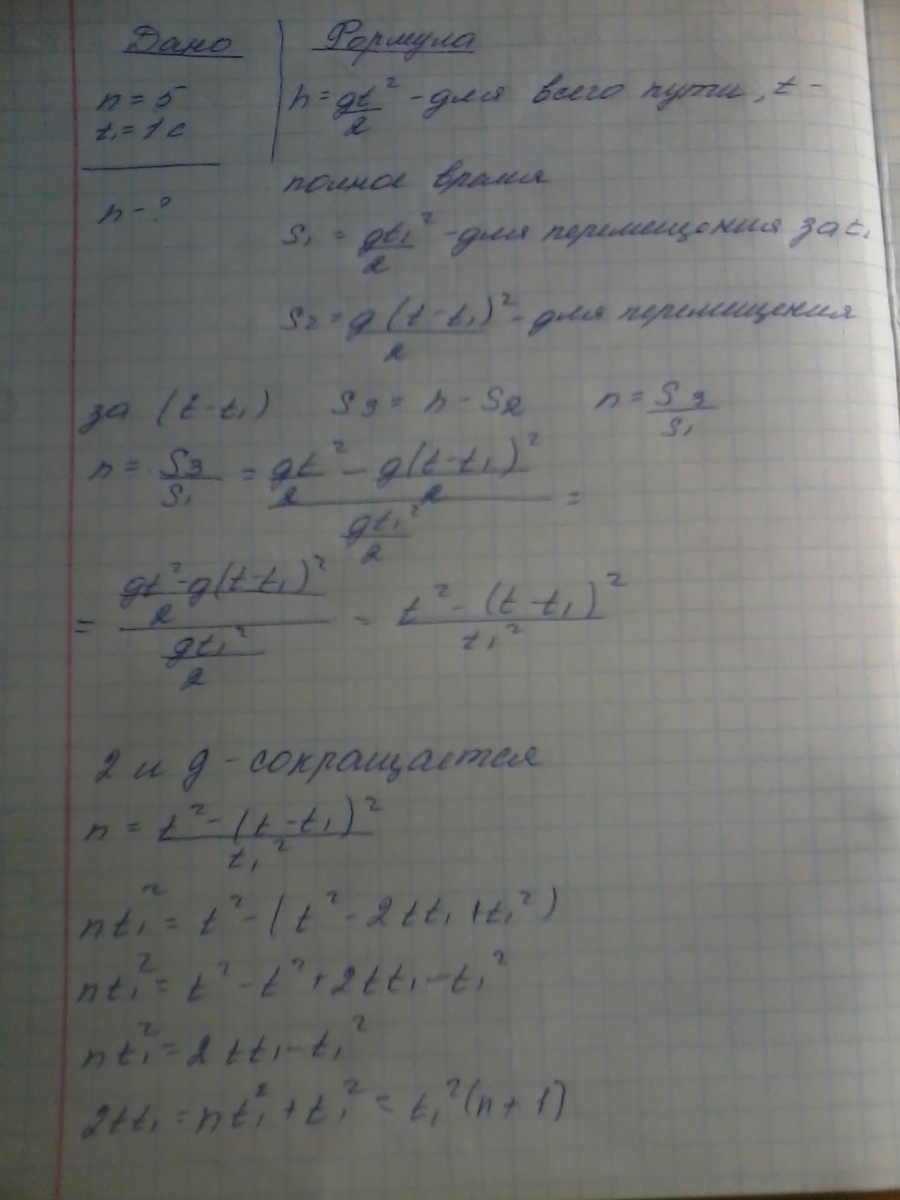 Дано Формула
n = 5 h = gt²/2 - для всего пути, t -
t₁ = 1 с
полное время
h - ?
S₁ = gt₁²/2 - для перемещения за t₁
S₂ = g(t-t₁)²/2 - для перемещения
за (t-t₁) S₃ = h - S₂ n = S₃/S₁
n = S₃/S₁ = (gt²/2 - g(t-t₁)²/2)/(gt₁²/2) =
= ((gt²-g(t-t₁)²)/2)/(gt₁²/2) = (t² - (t-t₁)²)/t₁²
2 и g - сокращается
n = (t² - (t-t₁)²)/t₁²
nt₁² = t² - (t² - 2tt₁ + t₁²)
nt₁² = t² - t² + 2tt₁ - t₁²
nt₁² = 2tt₁ - t₁²
2tt₁ = nt₁² + t₁² = t₁²(n+1)